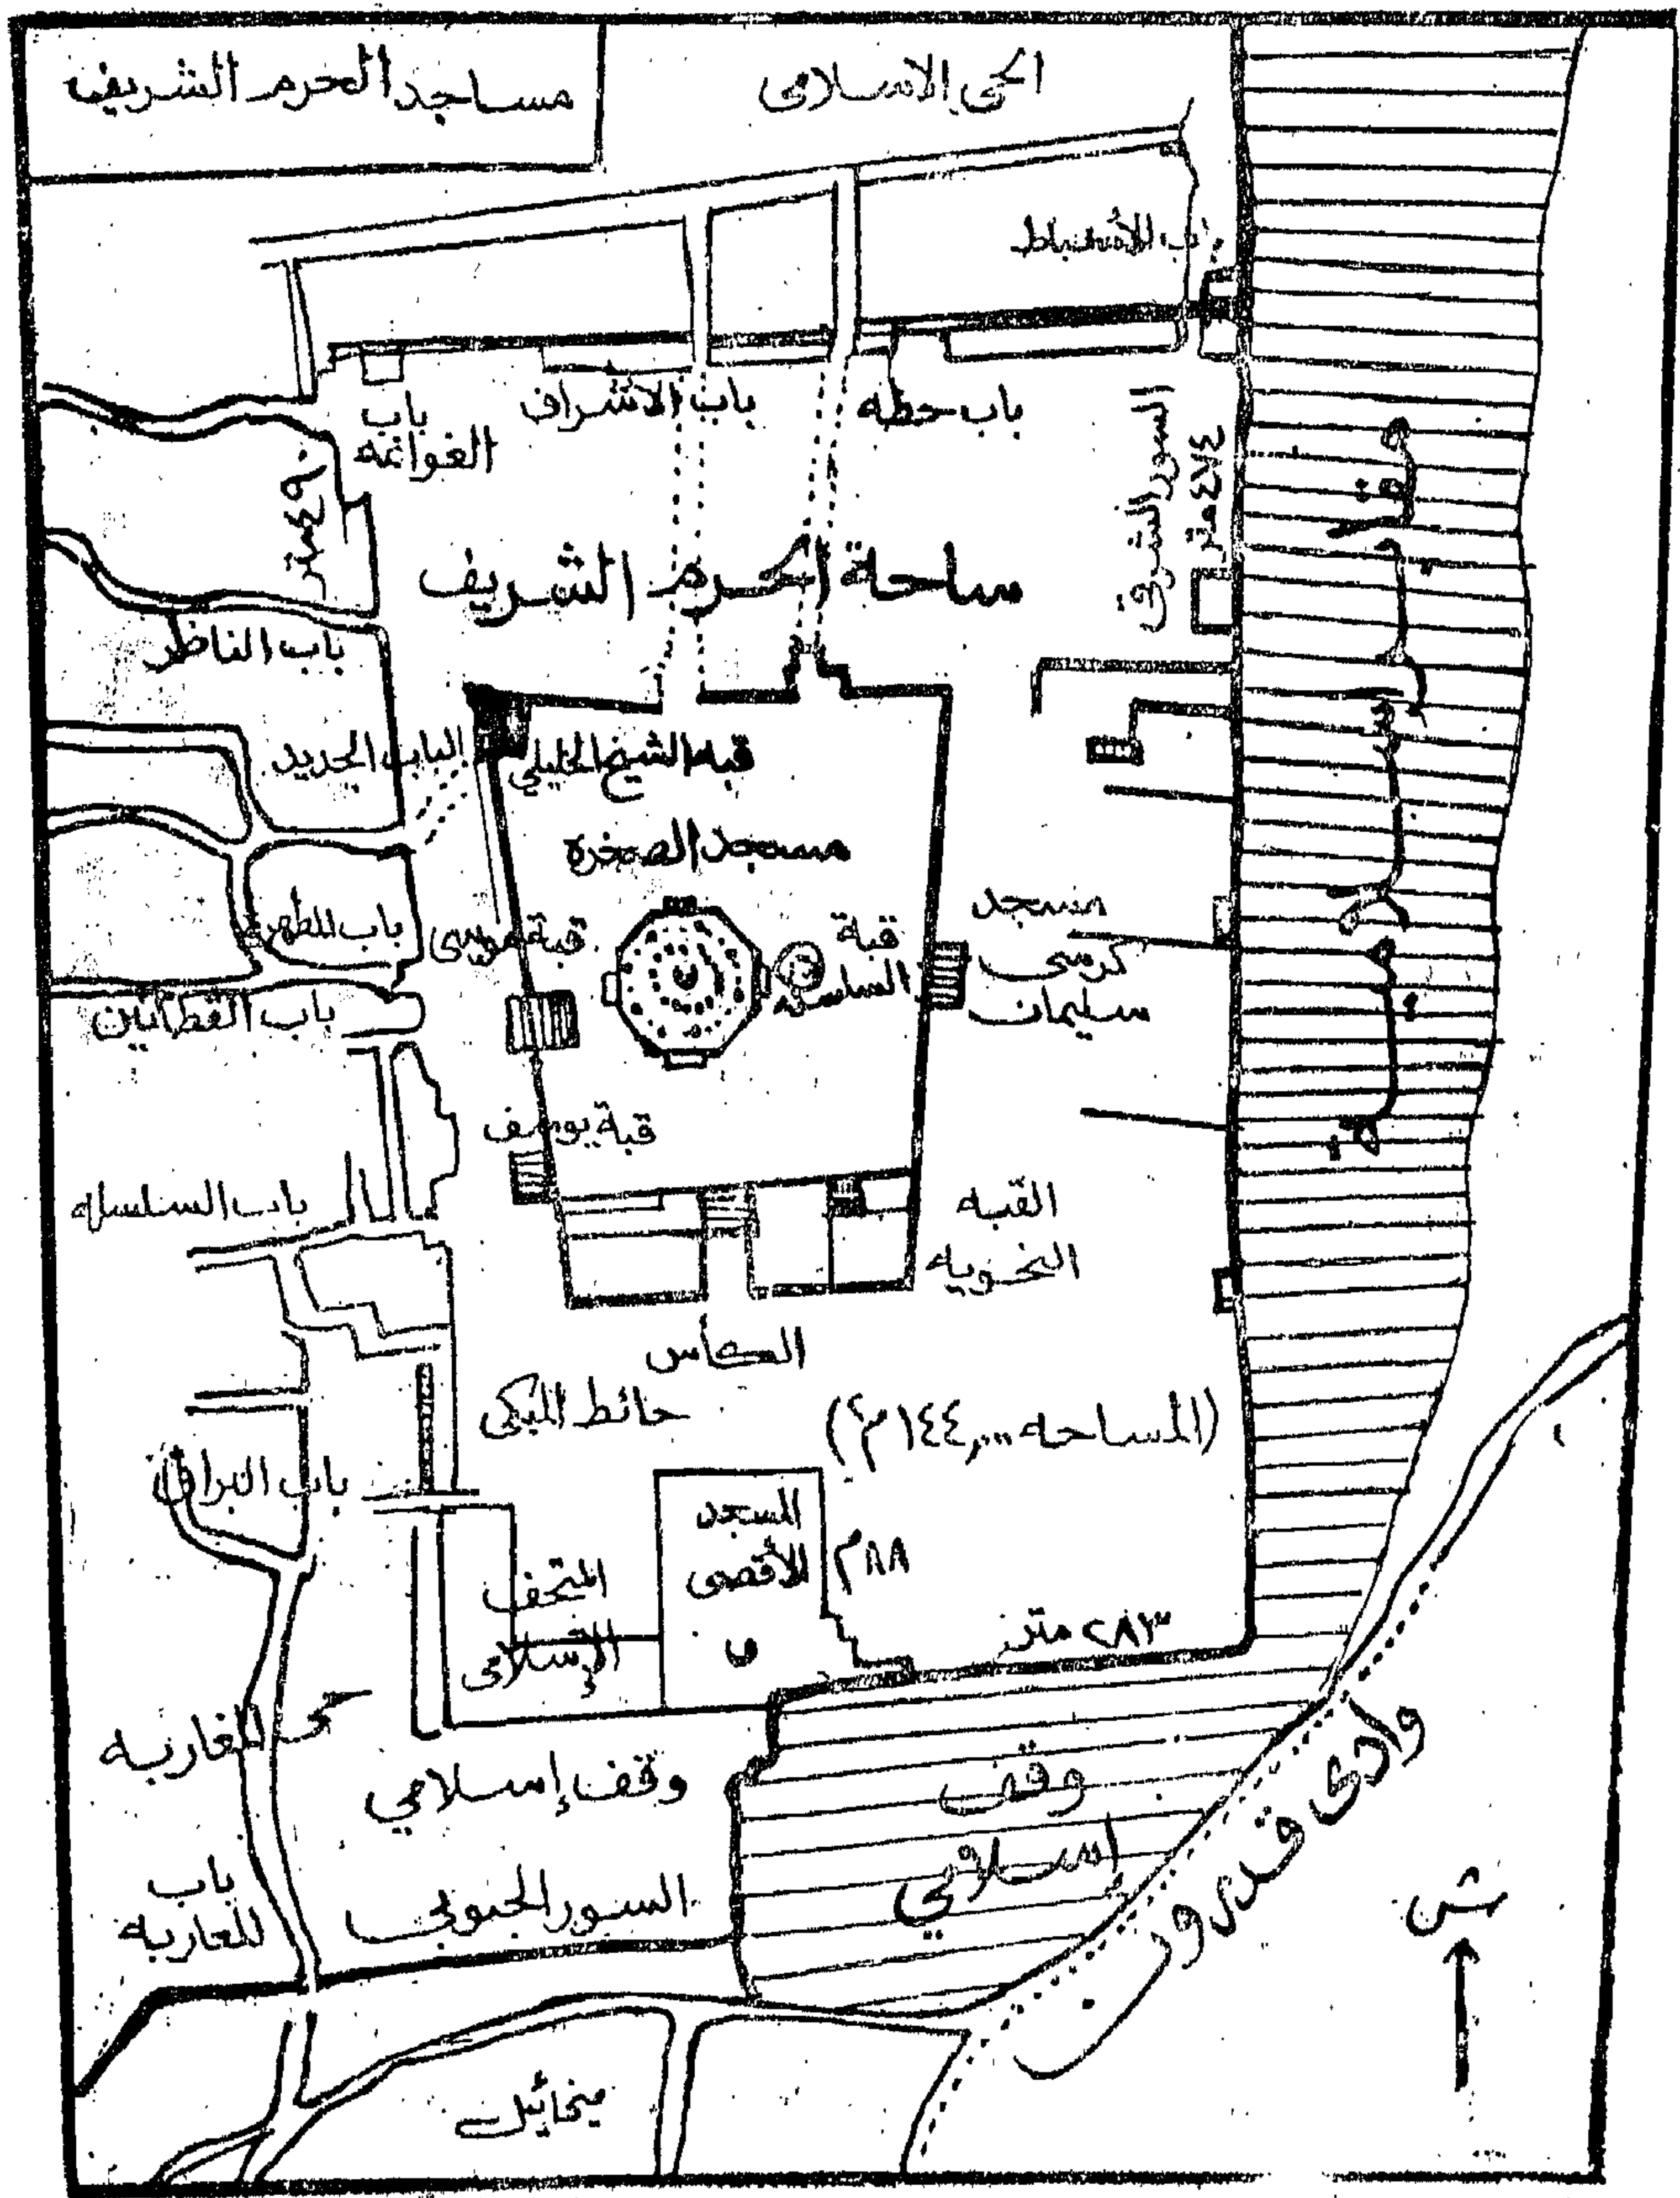 مساجد الحرم الشريف
الحي الاسلامى
باب الأسباط
باب حطه
باب الأشراف
باب
الغوانمه
السور الشرقى
٤٧٤ متر
٤٩٠ متر
ساحة الحرم الشريف
باب الناظر
الباب الجديد
قبه الشيخ الخليلي
مسجد الصخره
باب المطهره
قبة موسى
قبة
السلسله
مسجد
كرسى
سليمان
باب القطانين
قبة يوسف
باب السلسله
القبه
النحويه
الكأس
حائط المبكى
(المساحه ١٤٤,٠٠٠ م٢)
باب البراق
المسجد
الأقصى
٨٨م
المتحف
الإسلامى
٢٨٣ متر
حى المغاربه
وقف إسلامي
وقف
اسلامي
وادى قدرون
باب
المغاربه
السور الجنوبى
ش